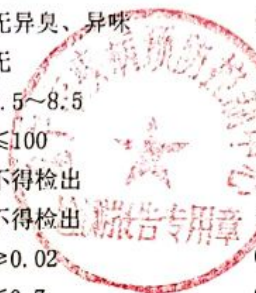 无异臭、异味
无
.5~8.5
≤100
不得检出
不得检出
≥0.02
检测报告专用章